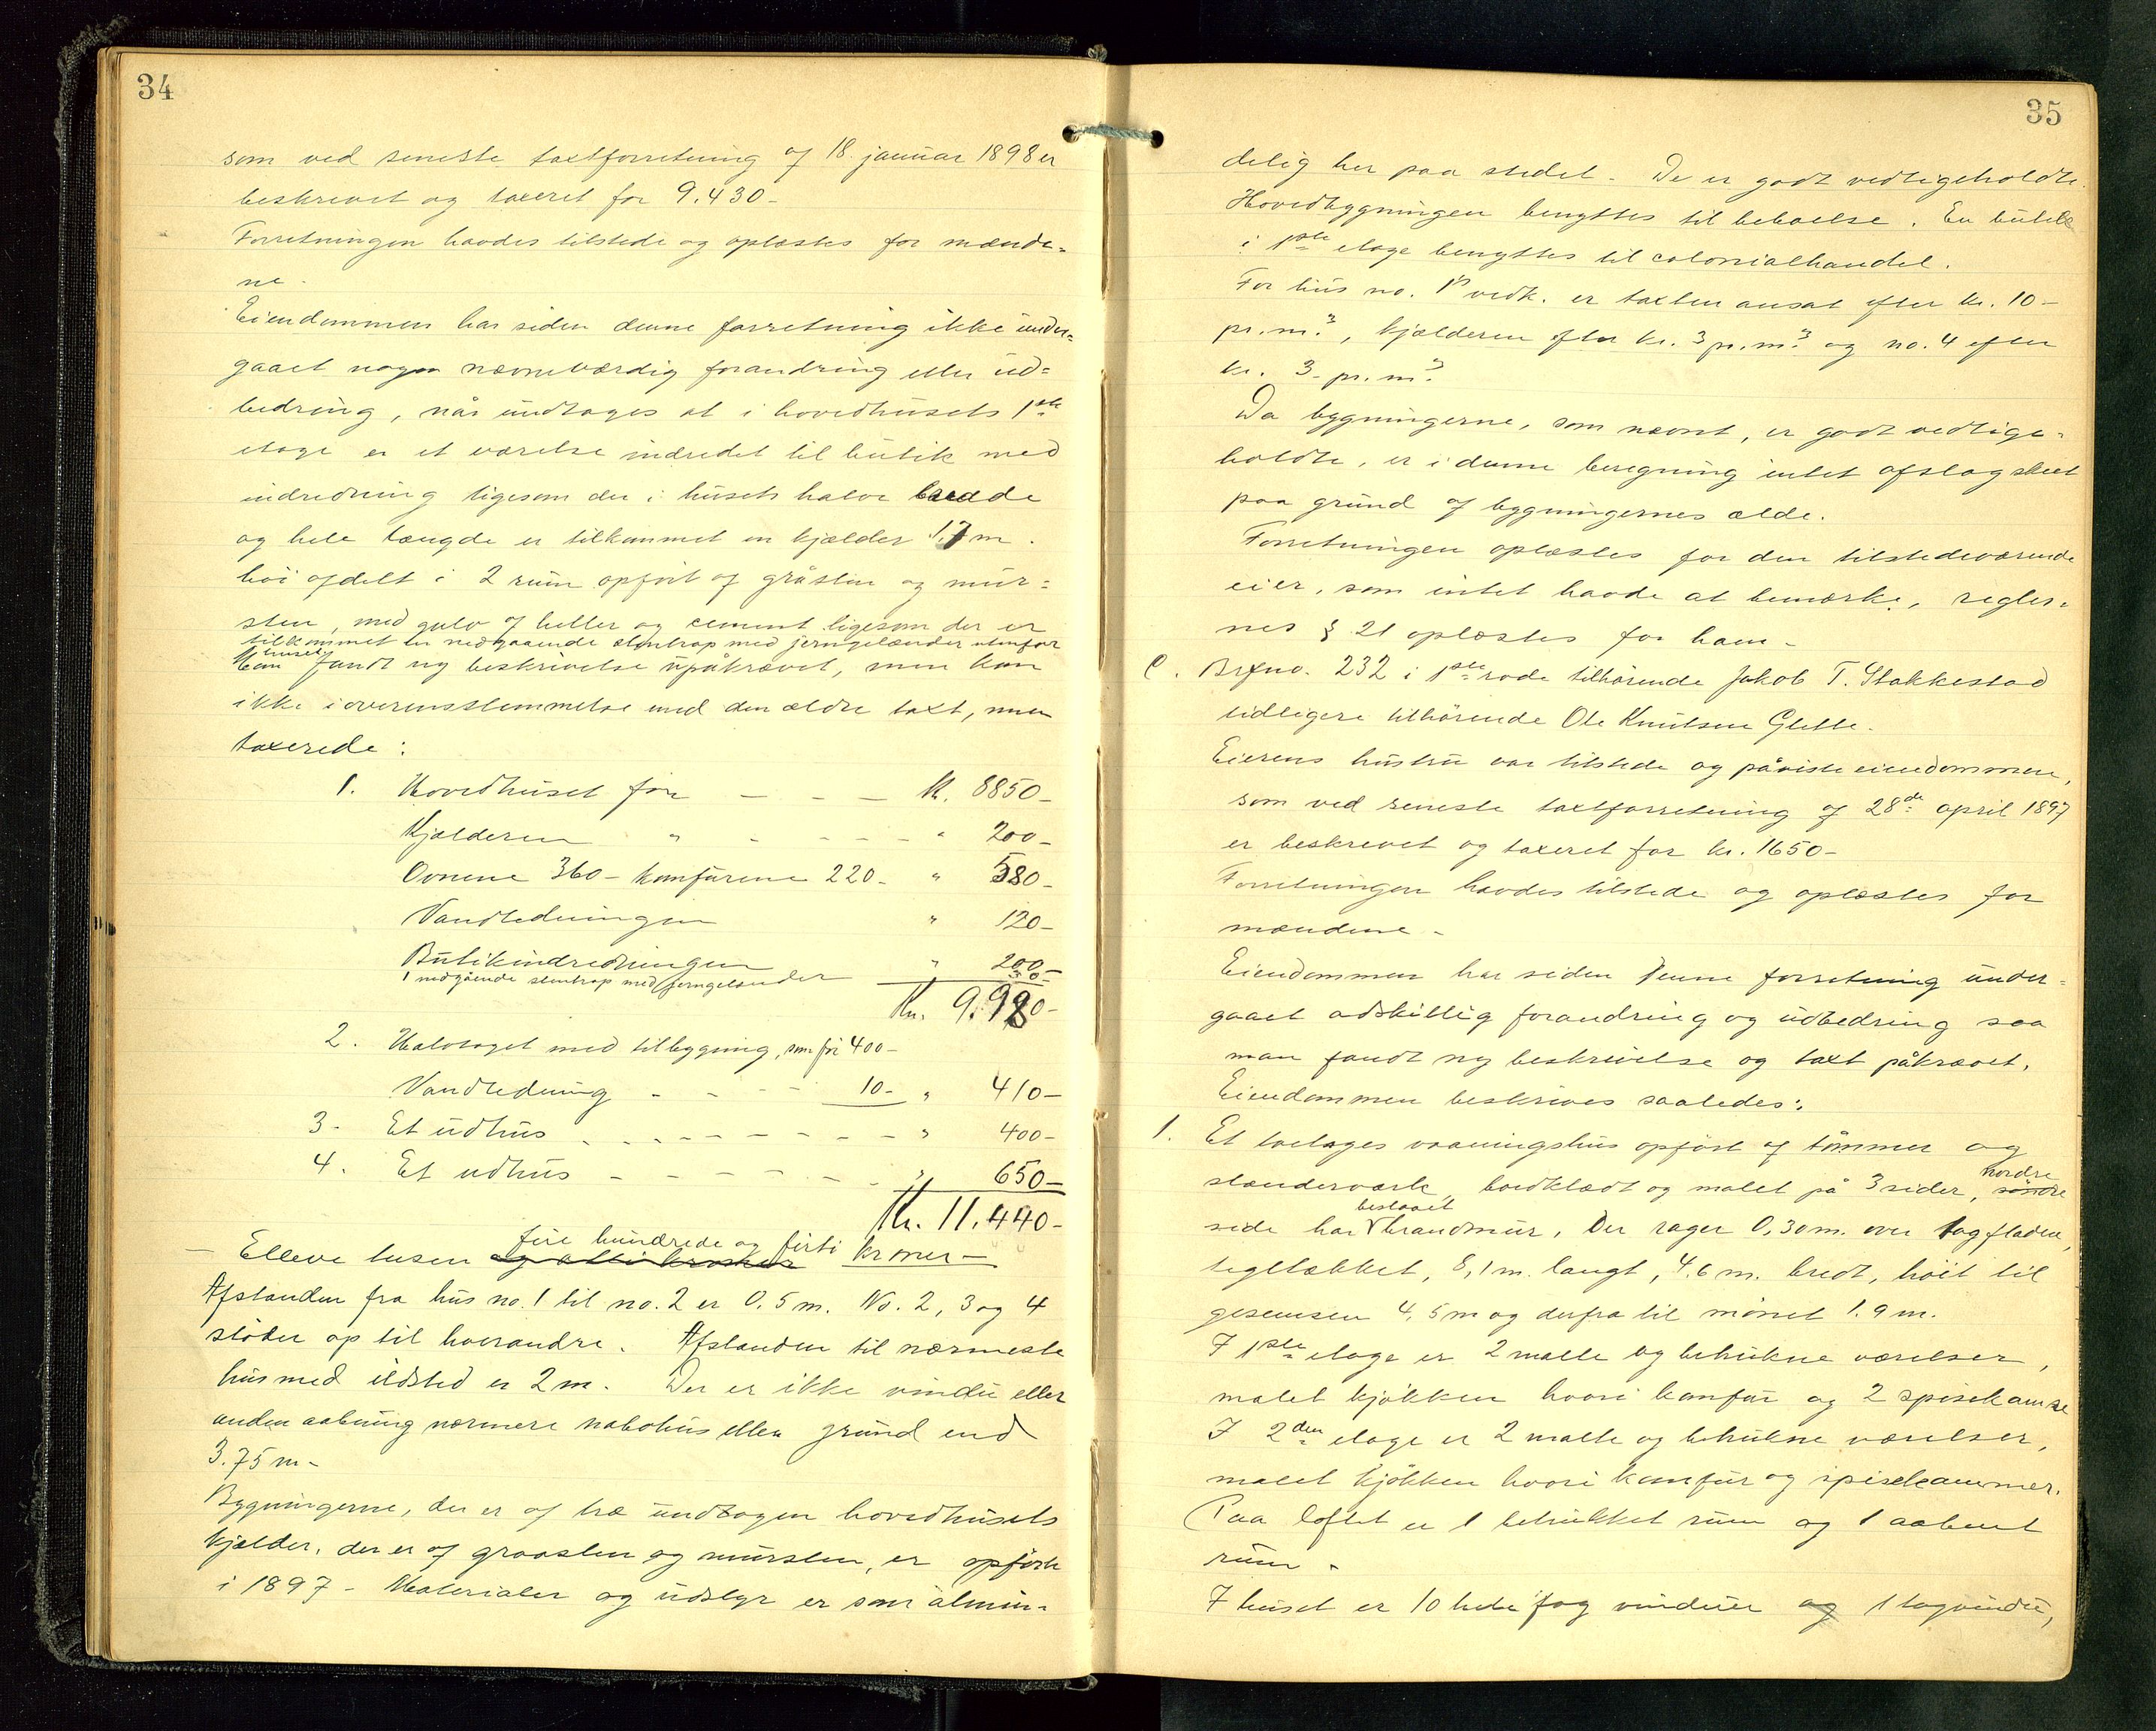 34
som ved seneste taxtforretning af 18. januar 1898 er
beskrevet og taxeret for 9.430-
Forretningen havdes tilstede og oplæstes for mænde=
ne.
Eiendommen har siden denne forretning ikke under=
gaaet nogen nævneværdig forandring eller ud=
bedring, når undtages at i hovedhusets 1ste
etage er et værelse indredet til butik med
indredning ligesom der i husets halve bredde
og hele længde er tilkommet en kjælder 1.7 m.
høi afdelt i 2 rum opført af gråsten og mur=
sten, med gulv af heller og cement ligesom der er
tilkommet en nedgaaende stentrap med jerngelænder utenfor
huset
Man fandt ny beskrivelse upåkrævet, men kom
ikke i overensstemmelse med den ældre taxt, men
taxerede:
1. Hovedhuset for - - - Kr. 8850-
Kjælderen " - - - - " 200-
Ovnene 360- Komfurene 220- " 580-
Vandledningen " 120-
Butikindredningen " 200-
1 nedgående stentrap med jerngelænder
Kr. 9.980-
2. Halvtaget med tilbygning, som før 400-
Vandledning - - - 10- " 410-
3. Et udhus - - - - - - - " 400-
4. Et udhus - - - - - - " 650-
Kr. 11.440-
fire hundrede og firti
- Elleve tusen og otti kroner kroner-
Afstanden fra hus no. 1 til no. 2 er 0.5 m. No. 2, 3 og 4
støder op til hverandre. Afstanden til nærmeste
hus med ildsted er 2 m. Der er ikke vindu eller
anden aabning nærmere nabohus eller grund end
3.75 m-
Bygningerne, der er af træ undtagen hovedhusets
kjælder, der er af graasten og mursten, er opført
i 1897- Materialer og udstyr er som almin=
35
delig her paa stedet. De er godt vedligeholdte.
Hovedbygningen benyttes til beboelse. En butik
i 1ste etage benyttes til colonialhandel.
For hus no. 1s vedk. er taxten ansat efter kr. 10-
pr. m.3, kjælderen efter kr. 3 pr. m.3 og no. 4 efter
kr. 3- pr. m.3
Da bygningerne, som nævnt, er godt vedlige=
holdte, er i denne beregning intet afslag skeet
paa grund af bygningernes ælde.
Forretningen oplæstes for den tilstedeværende
eier, som intet havde at bemærke, regler=
nes § 21 oplæstes for ham-
C. Brfno. 232 i 1ste rode tilhørende Jakob T. Stakkestad
tidligere tilhørende Ole Knutsen Glette.
Eierens hustru var tilstede og påviste eiendommen,
som ved seneste taxtforretning af 28de april 1897
er beskrevet og taxeret for kr. 1650-
Forretningen havdes tilstede og oplæstes for
mændene-
Eiendommen har siden denne forretning under=
gaaet adskillig forandring og udbedring saa
man fandt ny beskrivelse og taxt påkrævet.
Eiendommen beskrives saaledes:
1. Et toetages vaaningshus opført af tømmer og
stænderværk, bordklædt og malet på 3 sider, nordre søndre
side har bestaaet brandmur, Der rager 0,30 m. over tagfladen,
tegltækket, 8,1 m. langt, 4.6 m. bredt, høit til
gesemsen 4,5 m og derfra til mønet 1.9 m.
I 1ste etage er 2 malte og betrukne værelser,
malet kjøkken hvori komfur og 2 spisekamre
I 2den etage er 2 malte og betrukne værelser,
malet kjøkken hvori komfur og spisekammer.
Paa loftet er 1 betrukket rum og 1 aabent
rum-
I huset er 10 hele fag vinduer og 1 tagvindu,